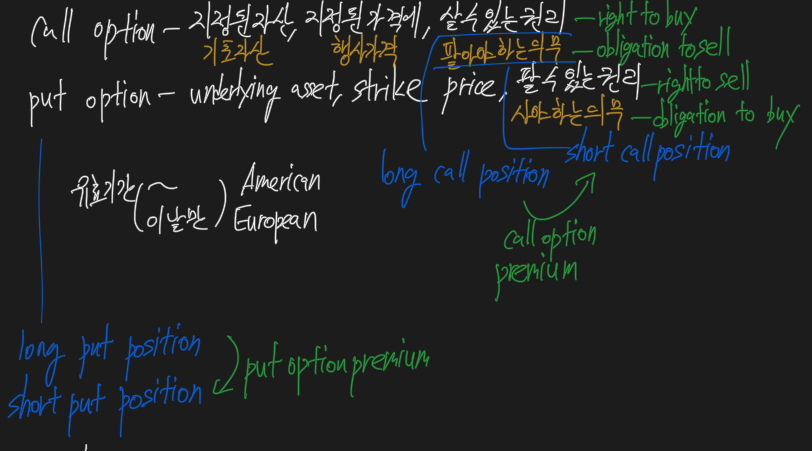 call option - 지정된자산, 지정된가격에, 살수있는권리 - right to buy
기초자산 행사가격 팔아야하는의무 - obligation to sell
put option - underlying asset, strike price, 팔수있는권리 - right to sell
사야하는의무 - obligation to buy
long call position short call position
유효기간 ( ~ ) American
이날만 European
call option
premium
long put position
short put position
put option premium